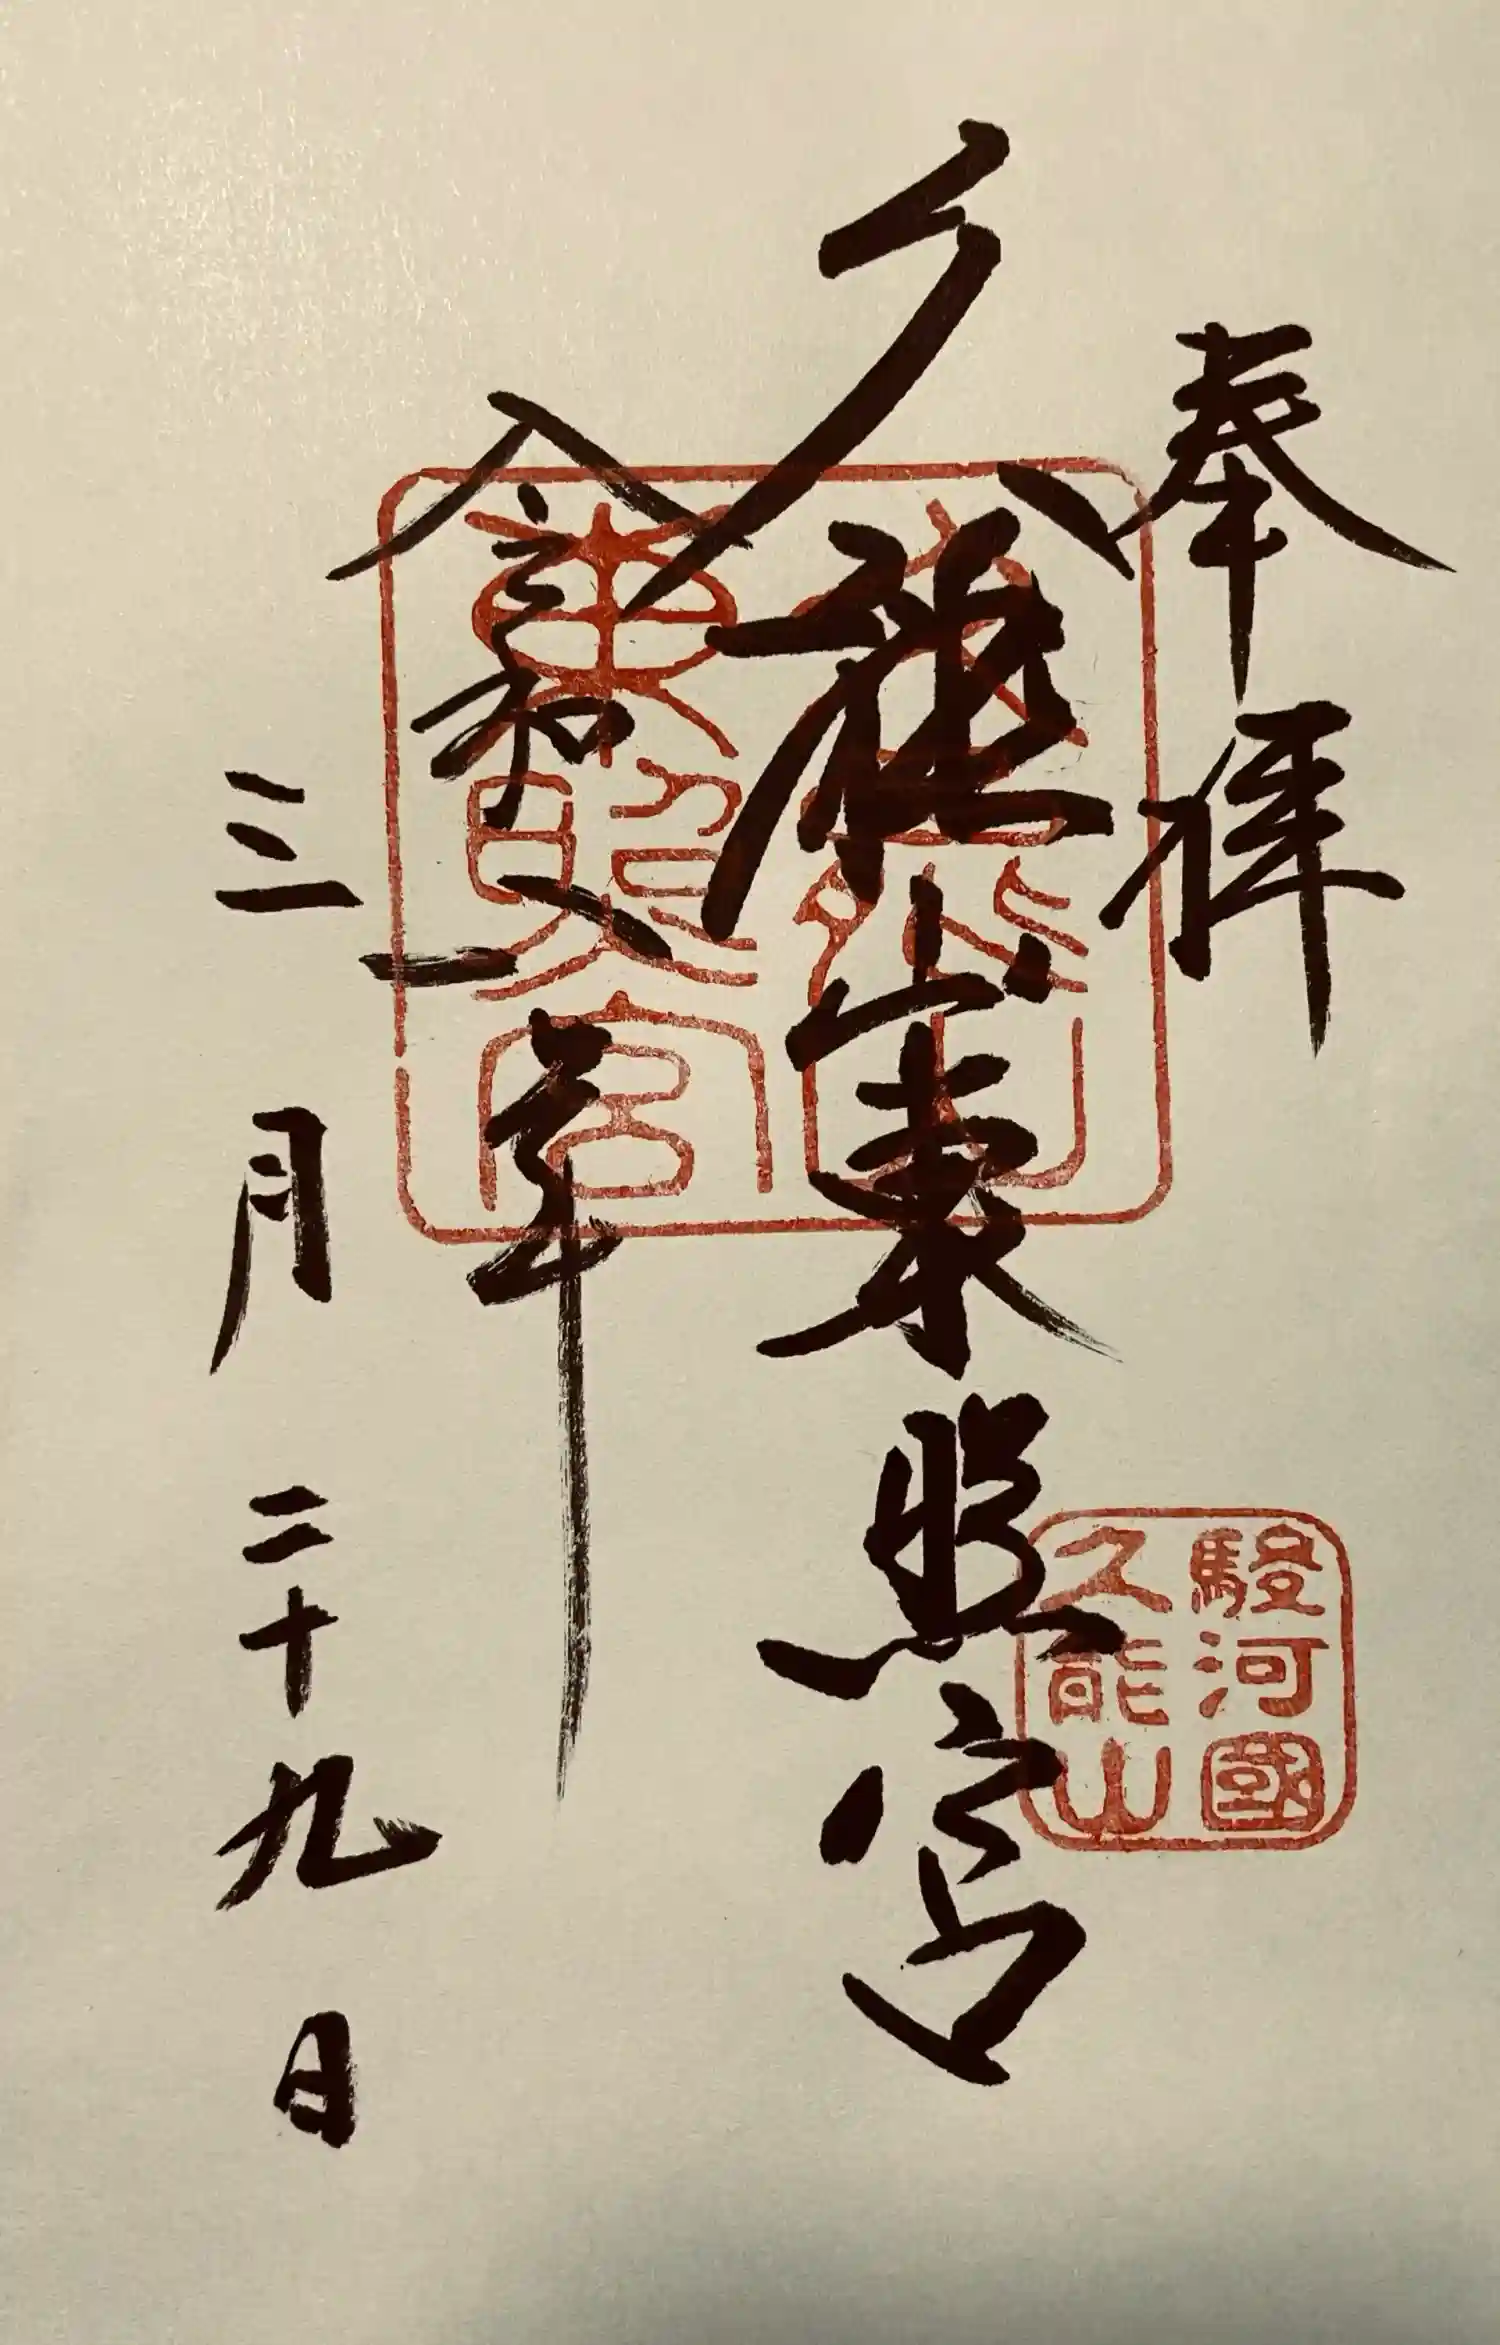 奉拝
駿河國
久能山
久能山東照宮
久能山
東照宮
令和八年
三月二十九日